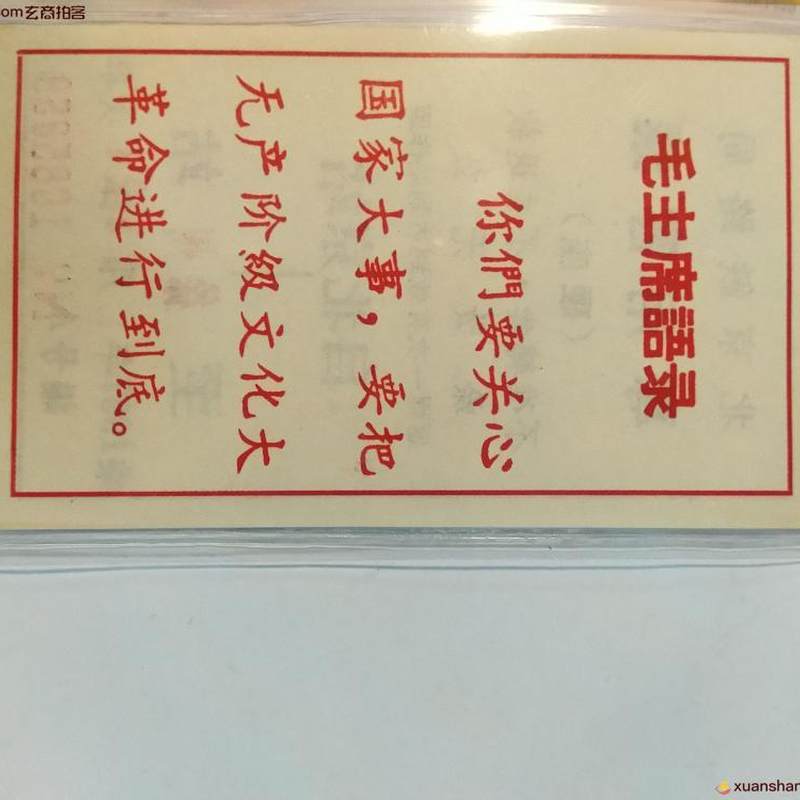 毛主席語录
你們要关心
国家大事，要把
无产阶級文化大
革命进行到底。
om玄商拍客
xuanshan